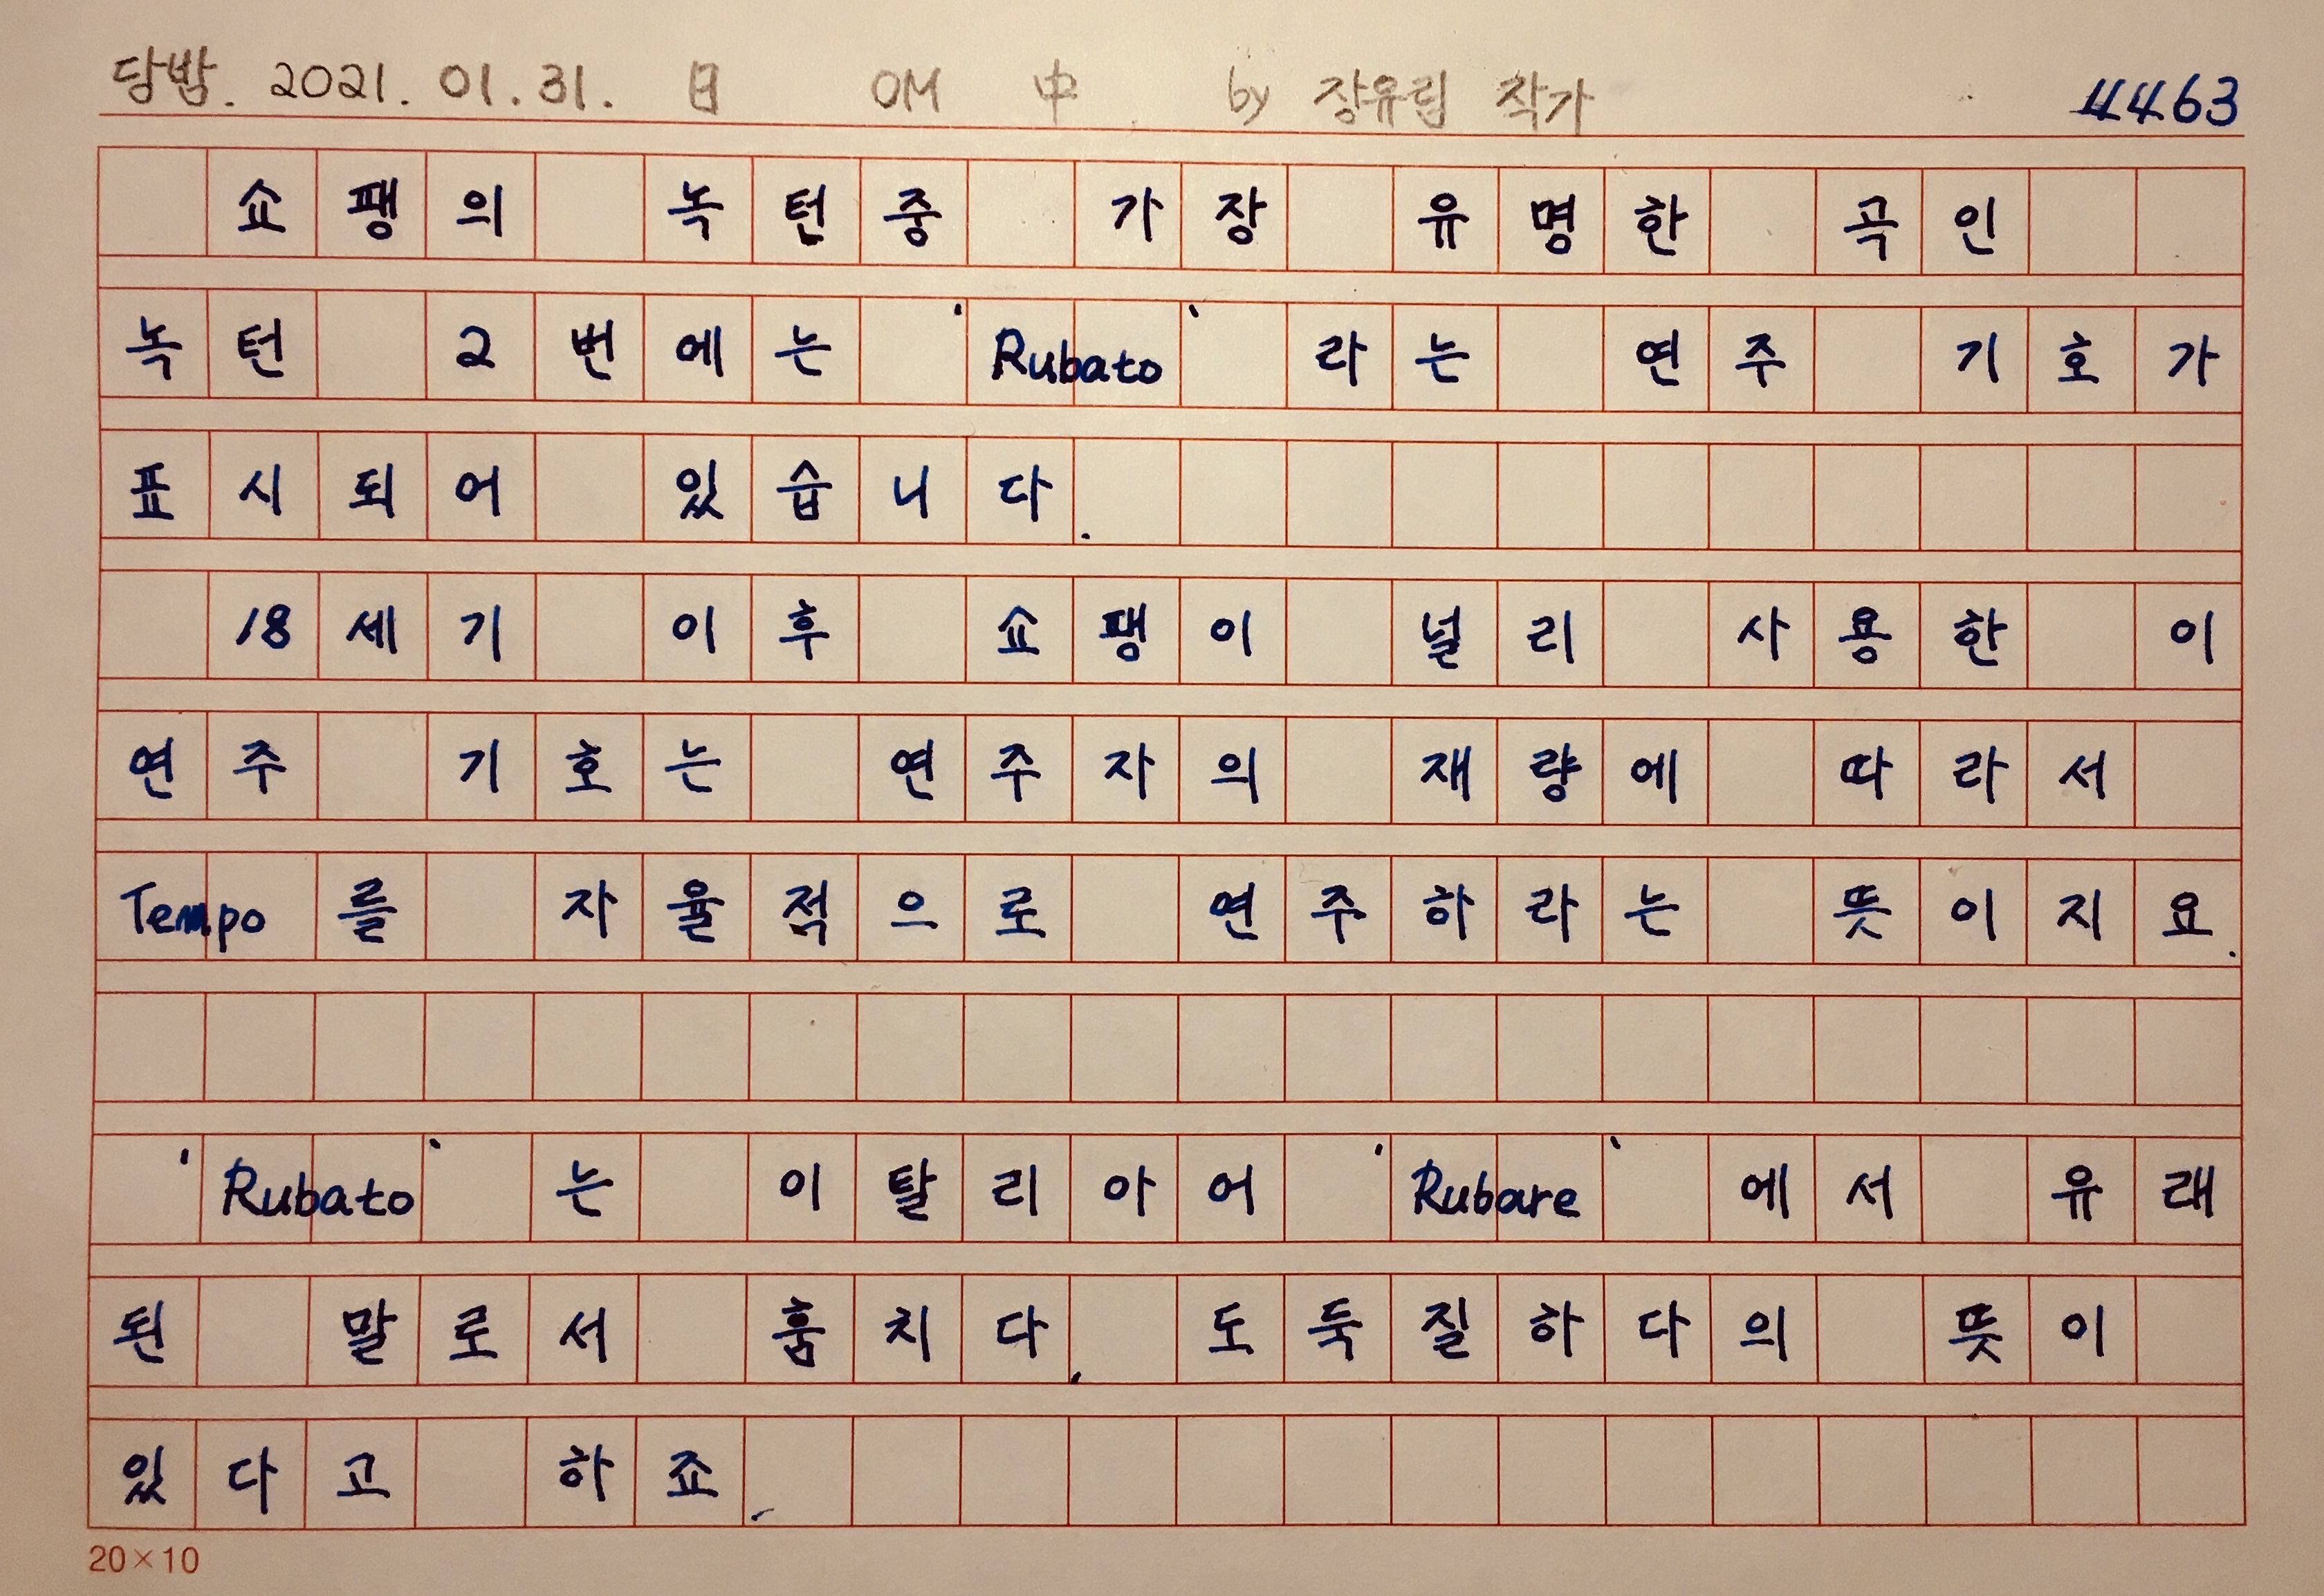 당밤. 2021. 01. 31. 日 OM 中 by 장유림 작가 4463
쇼팽의 녹턴중 가장 유명한 곡인
녹턴 2번에는 'Rubato' 라는 연주 기호가
표시되어 있습니다.
18세기 이후 쇼팽이 널리 사용한 이
연주 기호는 연주자의 재량에 따라서
Tempo를 자율적으로 연주하라는 뜻이지요.
'Rubato' 는 이탈리아어 'Rubare' 에서 유래
된 말로서 훔치다. 도둑질하다의 뜻이
있다고 하죠.
20×10